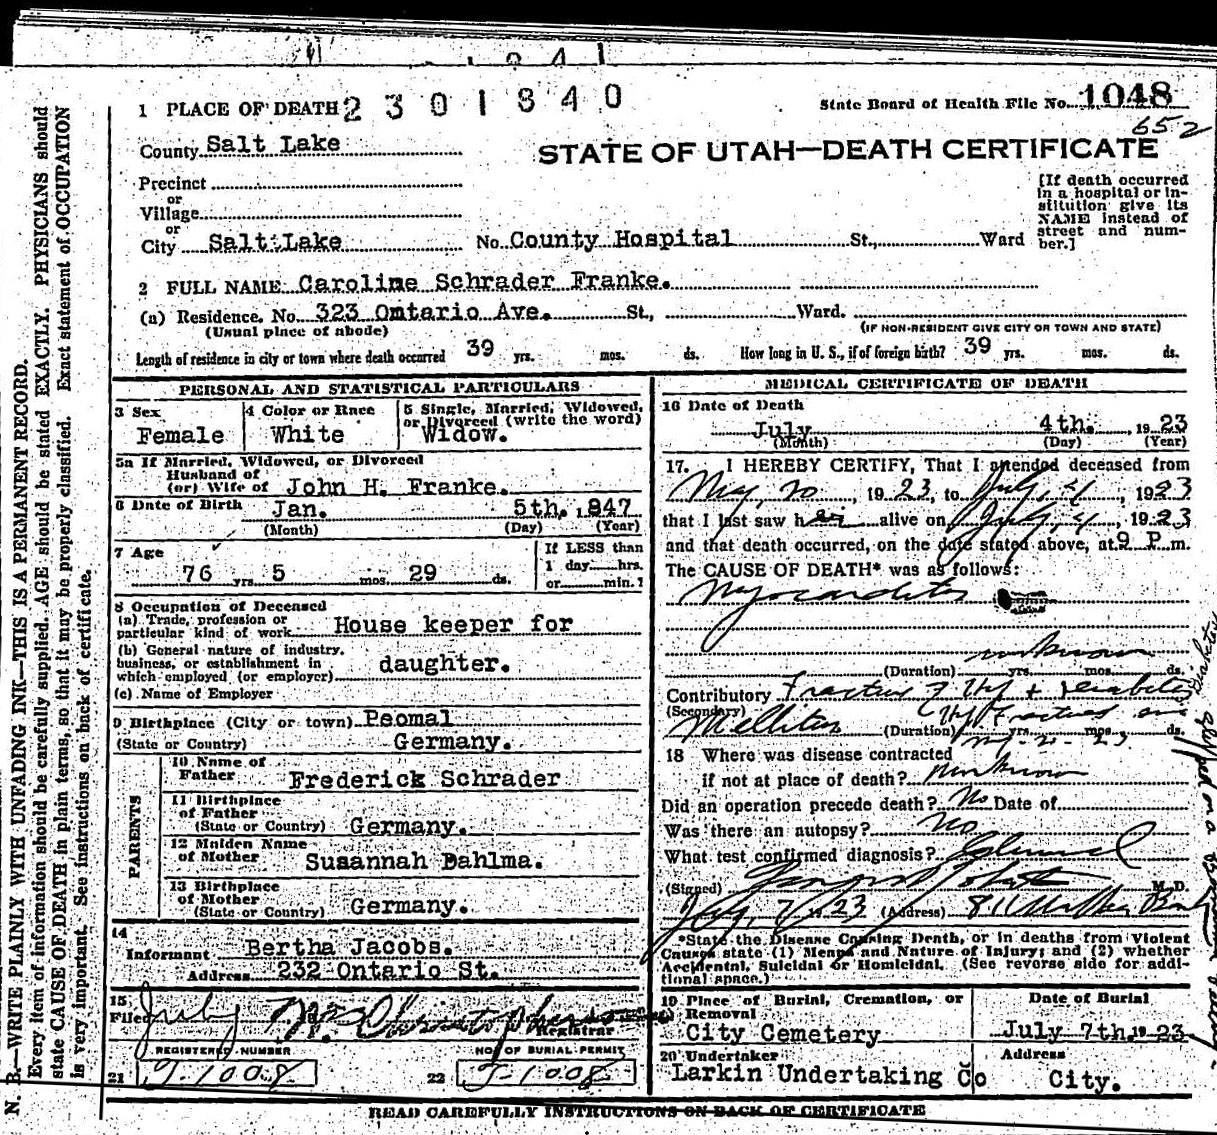 1 PLACE OF DEATH 2301840
State Board of Health File No. 1048
652
County Salt Lake
STATE OF UTAH—DEATH CERTIFICATE
Precinct
or
Village
or
City Salt Lake No. County Hospital St., Ward
[If death occurred
in a hospital or in-
stitution give its
NAME instead of
street and num-
ber.]
2 FULL NAME Caroline Schrader Franke.
(a) Residence. No. 323 Ontario Ave. St., Ward.
(Usual place of abode) (IF NON-RESIDENT GIVE CITY OR TOWN AND STATE)
Length of residence in city or town where death occurred 39 yrs. mos. ds. How long in U. S., if of foreign birth? 39 yrs. mos. ds.
PERSONAL AND STATISTICAL PARTICULARS
3 Sex 4 Color or Race 5 Single, Married, Widowed,
or Divorced (write the word)
Female White Widow.
5a If Married, Widowed, or Divorced
Husband of
(or) Wife of John H. Franke.
6 Date of Birth Jan. 5th. 1847
(Month) (Day) (Year)
7 Age If LESS than
1 day hrs.
or min.?
76 yrs. 5 mos. 29 ds.
8 Occupation of Deceased
(a) Trade, profession or
particular kind of work House keeper for
(b) General nature of industry,
business, or establishment in
which employed (or employer) daughter.
(c) Name of Employer
9 Birthplace (City or town) Peomal
(State or Country) Germany.
PARENTS
10 Name of
Father Frederick Schrader
11 Birthplace
of Father
(State or Country) Germany.
12 Maiden Name
of Mother Susannah Dahlma.
13 Birthplace
of Mother
(State or Country) Germany.
14
Informant Bertha Jacobs.
Address 232 Ontario St.
15
Filed July
Registrar
REGISTERED NUMBER NO. OF BURIAL PERMIT
21 J-1008 22 J-1008
MEDICAL CERTIFICATE OF DEATH
16 Date of Death
July 4th. 1923
(Month) (Day) (Year)
17. I HEREBY CERTIFY, That I attended deceased from
May, 20, 1923, to July, 4, 1923
that I last saw her alive on July, 4, 1923
and that death occurred, on the date stated above, at 9 P. m.
The CAUSE OF DEATH* was as follows:
Myocarditis
unknown
(Duration) yrs. mos. ds.
Contributory Fracture of Hip & Diabetes
(Secondary)
Mellitus Hip fractured on
(Duration) yrs. mos. ds.
18 Where was disease contracted
if not at place of death? unknown
Did an operation precede death? No Date of
Was there an autopsy? No
What test confirmed diagnosis? Clinical
(Signed) M. D.
July, 7, 1923 (Address) 811 Walker Bank
*State the Disease Causing Death, or in deaths from Violent
Causes state (1) Means and Nature of Injury; and (2) whether
Accidental, Suicidal or Homicidal. (See reverse side for addi-
tional space.)
19 Place of Burial, Cremation, or
Removal Date of Burial
City Cemetery July 7th. 1923
20 Undertaker Address
Larkin Undertaking Co City.
READ CAREFULLY INSTRUCTIONS ON BACK OF CERTIFICATE
N. B.—WRITE PLAINLY WITH UNFADING INK—THIS IS A PERMANENT RECORD.
Every item of information should be carefully supplied. AGE should be stated EXACTLY. PHYSICIANS should
state CAUSE OF DEATH in plain terms, so that it may be properly classified. Exact statement of OCCUPATION
is very important. See instructions on back of certificate.